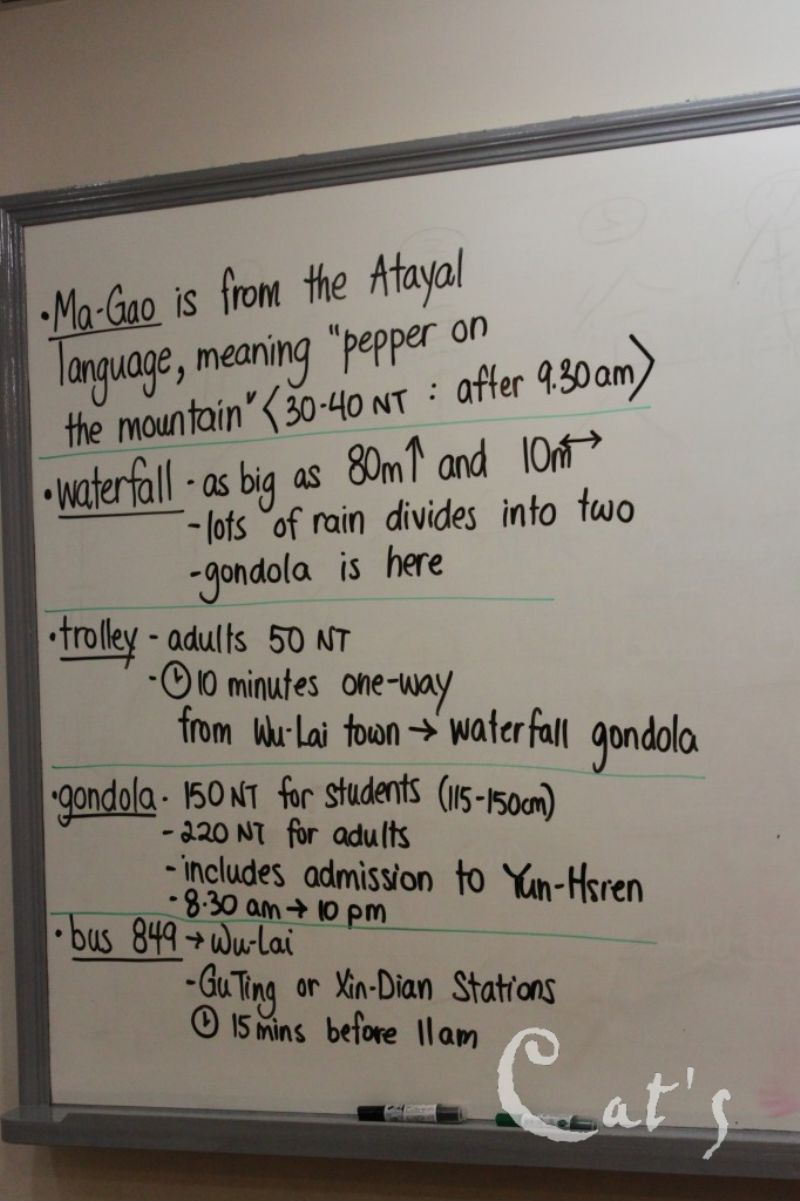 •Ma-Gao is from the Atayal
language, meaning "pepper on
the mountain" <30-40 NT : after 9.30am>
•waterfall - as big as 80m↑ and 10m↔
-lots of rain divides into two
-gondola is here
•trolley - adults 50 NT
-10 minutes one-way
from Wu-Lai town → waterfall gondola
•gondola - 150 NT for students (115-150cm)
-220 NT for adults
-includes admission to Yun-Hsren
-8.30 am → 10 pm
•bus 849 → Wu-Lai
-GuTing or Xin-Dian Stations
15 mins before 11am
Cat's